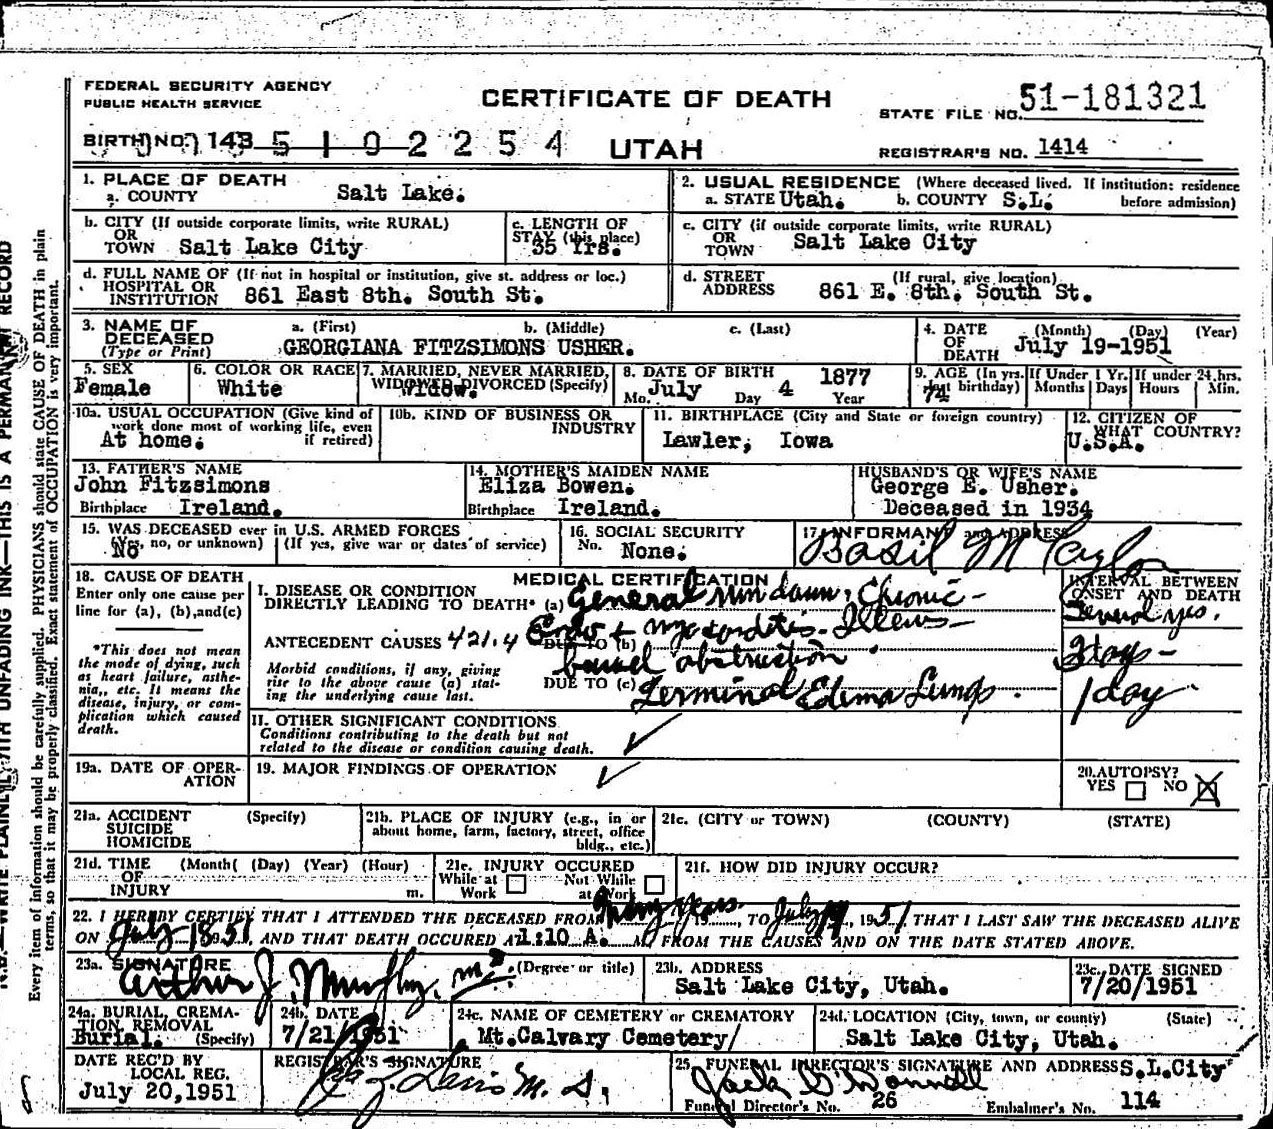 FEDERAL SECURITY AGENCY
PUBLIC HEALTH SERVICE
CERTIFICATE OF DEATH
STATE FILE NO. 51-181321
BIRTH NO. 143 5102254 UTAH
REGISTRAR'S NO. 1414
1. PLACE OF DEATH
a. COUNTY Salt Lake.
2. USUAL RESIDENCE (Where deceased lived. If institution: residence
a. STATE Utah. b. COUNTY S.L. before admission)
b. CITY (If outside corporate limits, write RURAL)
OR
TOWN Salt Lake City
c. LENGTH OF
STAY (this place)
35 Yrs.
c. CITY (if outside corporate limits, write RURAL)
OR
TOWN Salt Lake City
d. FULL NAME OF (If not in hospital or institution, give st. address or loc.)
HOSPITAL OR
INSTITUTION 861 East 8th. South St.
d. STREET (If rural, give location)
ADDRESS 861 E. 8th. South St.
3. NAME OF a. (First) b. (Middle) c. (Last)
DECEASED
(Type or Print) GEORGIANA FITZSIMONS USHER.
4. DATE (Month) (Day) (Year)
OF
DEATH July 19-1951
5. SEX
Female
6. COLOR OR RACE
White
7. MARRIED, NEVER MARRIED,
WIDOWED, DIVORCED (Specify)
Widow.
8. DATE OF BIRTH 1877
Mo. July Day 4 Year
9. AGE (In yrs. last birthday) 74
If Under 1 Yr. Months Days
If under 24 hrs. Hours Min.
10a. USUAL OCCUPATION (Give kind of
work done most of working life, even
if retired)
At home.
10b. KIND OF BUSINESS OR
INDUSTRY
11. BIRTHPLACE (City and State or foreign country)
Lawler, Iowa
12. CITIZEN OF
WHAT COUNTRY?
U.S.A.
13. FATHER'S NAME
John Fitzsimons
Birthplace Ireland.
14. MOTHER'S MAIDEN NAME
Eliza Bowen.
Birthplace Ireland.
HUSBAND'S OR WIFE'S NAME
George E. Usher.
Deceased in 1934
15. WAS DECEASED ever in U.S. ARMED FORCES
(Yes, no, or unknown) (If yes, give war or dates of service)
No
16. SOCIAL SECURITY
No. None.
17. INFORMANT and ADDRESS
Basil M Taylor
18. CAUSE OF DEATH
Enter only one cause per
line for (a), (b),and(c)
*This does not mean
the mode of dying, such
as heart failure, asthe-
nia,, etc. It means the
disease, injury, or com-
plication which caused
death.
MEDICAL CERTIFICATION
I. DISEASE OR CONDITION
DIRECTLY LEADING TO DEATH* (a) General run down, Chronic-
ANTECEDENT CAUSES 421.4 Endo + myocarditis - Illeus-
DUE TO (b)
Morbid conditions, if any, giving
rise to the above cause (a) stat-
ing the underlying cause last.
bowel obstruction
DUE TO (c) Terminal Edema Lungs.
INTERVAL BETWEEN
ONSET AND DEATH
Several yrs.
days-
1 day
II. OTHER SIGNIFICANT CONDITIONS
Conditions contributing to the death but not
related to the disease or condition causing death.
19a. DATE OF OPER-
ATION
19. MAJOR FINDINGS OF OPERATION
20. AUTOPSY?
YES NO
21a. ACCIDENT (Specify)
SUICIDE
HOMICIDE
21b. PLACE OF INJURY (e.g., in or
about home, farm, factory, street, office
bldg., etc.)
21c. (CITY or TOWN) (COUNTY) (STATE)
21d. TIME (Month( (Day) (Year) (Hour)
OF
INJURY m.
21e. INJURY OCCURED
While at Work Not While at Work
21f. HOW DID INJURY OCCUR?
22. I HEREBY CERTIFY THAT I ATTENDED THE DECEASED FROM many years 19, TO July 19, 1951 THAT I LAST SAW THE DECEASED ALIVE
ON July 18 1951, AND THAT DEATH OCCURED AT 1:10 A. M, FROM THE CAUSES AND ON THE DATE STATED ABOVE.
23a. SIGNATURE (Degree or title)
Arthur J. Murphy, M.D.
23b. ADDRESS
Salt Lake City, Utah.
23c. DATE SIGNED
7/20/1951
24a. BURIAL, CREMA-
TION REMOVAL
Burial. (Specify)
24b. DATE
7/21/1951
24c. NAME OF CEMETERY or CREMATORY
Mt.Calvary Cemetery/
24d. LOCATION (City, town, or county) (State)
Salt Lake City, Utah.
DATE REC'D BY
LOCAL REG.
July 20,1951
REGISTRAR'S SIGNATURE
25. FUNERAL DIRECTOR'S SIGNATURE AND ADDRESS S.L.City
Jack O'Donnell
Funeral Director's No. 26 Embalmer's No. 114
WRITE PLAINLY WITH UNFADING INK—THIS IS A PERMANENT RECORD
Every item of information should be carefully supplied. PHYSICIANS should state CAUSE OF DEATH in plain
terms, so that it may be properly classified. Exact statement of OCCUPATION is very important.